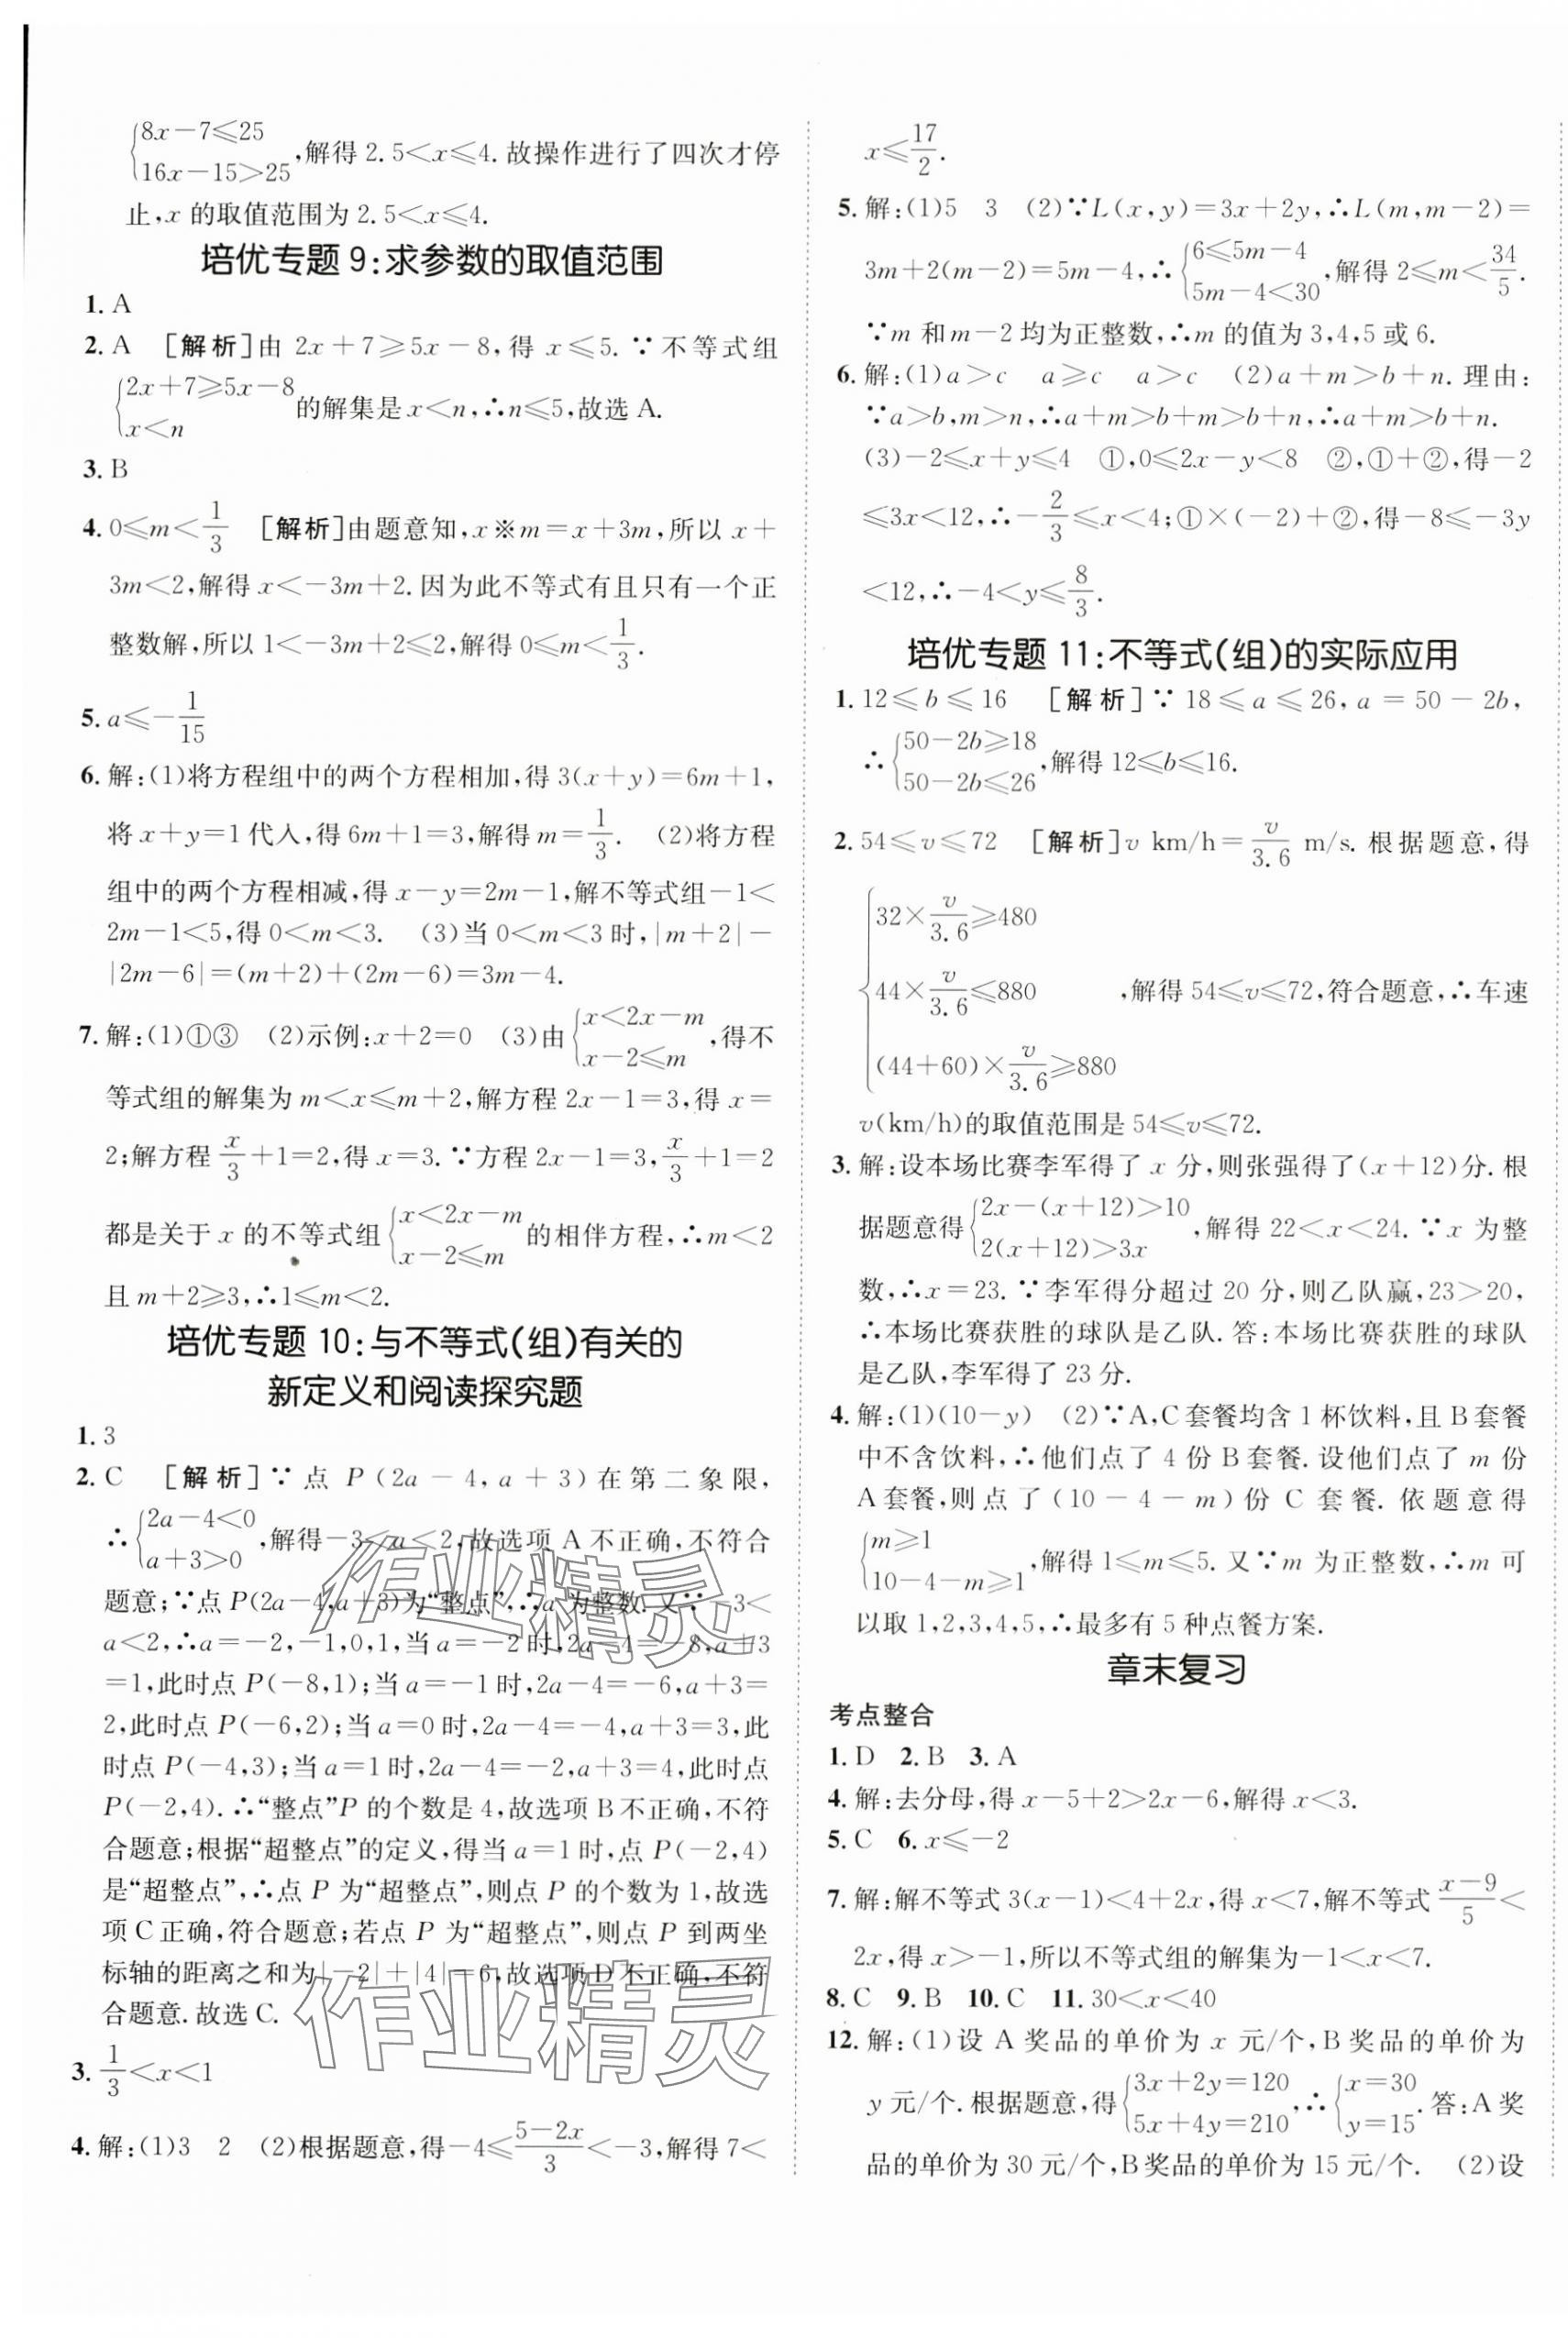 {8x-7⩽25
16x-15>25,解得 2.5<x⩽4.故操作进行了四次才停
止,x 的取值范围为 2.5<x⩽4.
培优专题 9:求参数的取值范围
1. A
2. A [解析]由 2x+7⩾5x-8,得 x⩽5.∵不等式组
{2x+7⩾5x-8
x<n 的解集是 x<n,∴n⩽5,故选 A.
3. B
4. 0⩽m<1/3 [解析]由题意知,x※m=x+3m,所以 x+
3m<2,解得 x<-3m+2.因为此不等式有且只有一个正
整数解,所以 1<-3m+2⩽2,解得 0⩽m<1/3.
5. a⩽-1/15
6. 解:(1)将方程组中的两个方程相加,得 3(x+y)=6m+1,
将 x+y=1 代入,得 6m+1=3,解得 m=1/3. (2)将方程
组中的两个方程相减,得 x-y=2m-1,解不等式组-1<
2m-1<5,得 0<m<3. (3)当 0<m<3 时,|m+2|-
|2m-6|=(m+2)+(2m-6)=3m-4.
7. 解:(1)①③ (2)示例:x+2=0 (3)由{x<2x-m
x-2⩽m,得不
等式组的解集为 m<x⩽m+2,解方程 2x-1=3,得 x=
2;解方程 x/3+1=2,得 x=3.∵方程 2x-1=3,x/3+1=2
都是关于 x 的不等式组{x<2x-m
x-2⩽m 的相伴方程,∴m<2
且 m+2⩾3,∴1⩽m<2.
培优专题 10:与不等式(组)有关的
新定义和阅读探究题
1. 3
2. C [解析]∵点 P(2a-4,a+3)在第二象限,
∴{2a-4<0
a+3>0,解得-3<a<2,故选项 A 不正确,不符合
题意;∵点 P(2a-4,a+3)为“整点”,∴a 为整数.又∵-3<
a<2,∴a=-2,-1,0,1,当 a=-2 时,2a-4=-8,a+3
=1,此时点 P(-8,1);当 a=-1 时,2a-4=-6,a+3=
2,此时点 P(-6,2);当 a=0 时,2a-4=-4,a+3=3,此
时点 P(-4,3);当 a=1 时,2a-4=-2,a+3=4,此时点
P(-2,4).∴“整点”P 的个数是 4,故选项 B 不正确,不符
合题意;根据“超整点”的定义,得当 a=1 时,点 P(-2,4)
是“超整点”,∴点 P 为“超整点”,则点 P 的个数为 1,故选
项 C 正确,符合题意;若点 P 为“超整点”,则点 P 到两坐
标轴的距离之和为|-2|+|4|=6,故选项 D 不正确,不符
合题意.故选 C.
3. 1/3<x<1
4. 解:(1)3 2 (2)根据题意,得-4⩽(5-2x)/3<-3,解得 7<
x⩽17/2.
5. 解:(1)5 3 (2)∵L(x,y)=3x+2y,∴L(m,m-2)=
3m+2(m-2)=5m-4,∴{6⩽5m-4
5m-4<30,解得 2⩽m<34/5.
∵m 和 m-2 均为正整数,∴m 的值为 3,4,5 或 6.
6. 解:(1)a>c a⩾c a>c (2)a+m>b+n.理由:
∵a>b,m>n,∴a+m>b+m>b+n,∴a+m>b+n.
(3)-2⩽x+y⩽4 ①,0⩽2x-y<8 ②,①+②,得-2
⩽3x<12,∴-2/3⩽x<4;①×(-2)+②,得-8⩽-3y
<12,∴-4<y⩽8/3.
培优专题 11:不等式(组)的实际应用
1. 12⩽b⩽16 [解析]∵18⩽a⩽26,a=50-2b,
∴{50-2b⩾18
50-2b⩽26,解得 12⩽b⩽16.
2. 54⩽v⩽72 [解析]v km/h=v/3.6 m/s.根据题意,得
{32×v/3.6⩾480
44×v/3.6⩽880 ,解得 54⩽v⩽72,符合题意,∴车速
(44+60)×v/3.6⩾880
v(km/h)的取值范围是 54⩽v⩽72.
3. 解:设本场比赛李军得了 x 分,则张强得了(x+12)分.根
据题意得{2x-(x+12)>10
2(x+12)>3x,解得 22<x<24.∵x 为整
数,∴x=23.∵李军得分超过 20 分,则乙队赢,23>20,
∴本场比赛获胜的球队是乙队.答:本场比赛获胜的球队
是乙队,李军得了 23 分.
4. 解:(1)(10-y) (2)∵A,C 套餐均含 1 杯饮料,且 B 套餐
中不含饮料,∴他们点了 4 份 B 套餐.设他们点了 m 份
A 套餐,则点了(10-4-m)份 C 套餐.依题意得
{m⩾1
10-4-m⩾1,解得 1⩽m⩽5.又∵m 为正整数,∴m 可
以取 1,2,3,4,5,∴最多有 5 种点餐方案.
章末复习
考点整合
1. D 2. B 3. A
4. 解:去分母,得 x-5+2>2x-6,解得 x<3.
5. C 6. x⩽-2
7. 解:解不等式 3(x-1)<4+2x,得 x<7,解不等式(x-9)/5<
2x,得 x>-1,所以不等式组的解集为-1<x<7.
8. C 9. B 10. C 11. 30<x<40
12. 解:(1)设 A 奖品的单价为 x 元/个,B 奖品的单价为
y 元/个.根据题意,得{3x+2y=120
5x+4y=210,∴{x=30
y=15.答:A 奖
品的单价为 30 元/个,B 奖品的单价为 15 元/个. (2)设
作业精灵
作业精灵